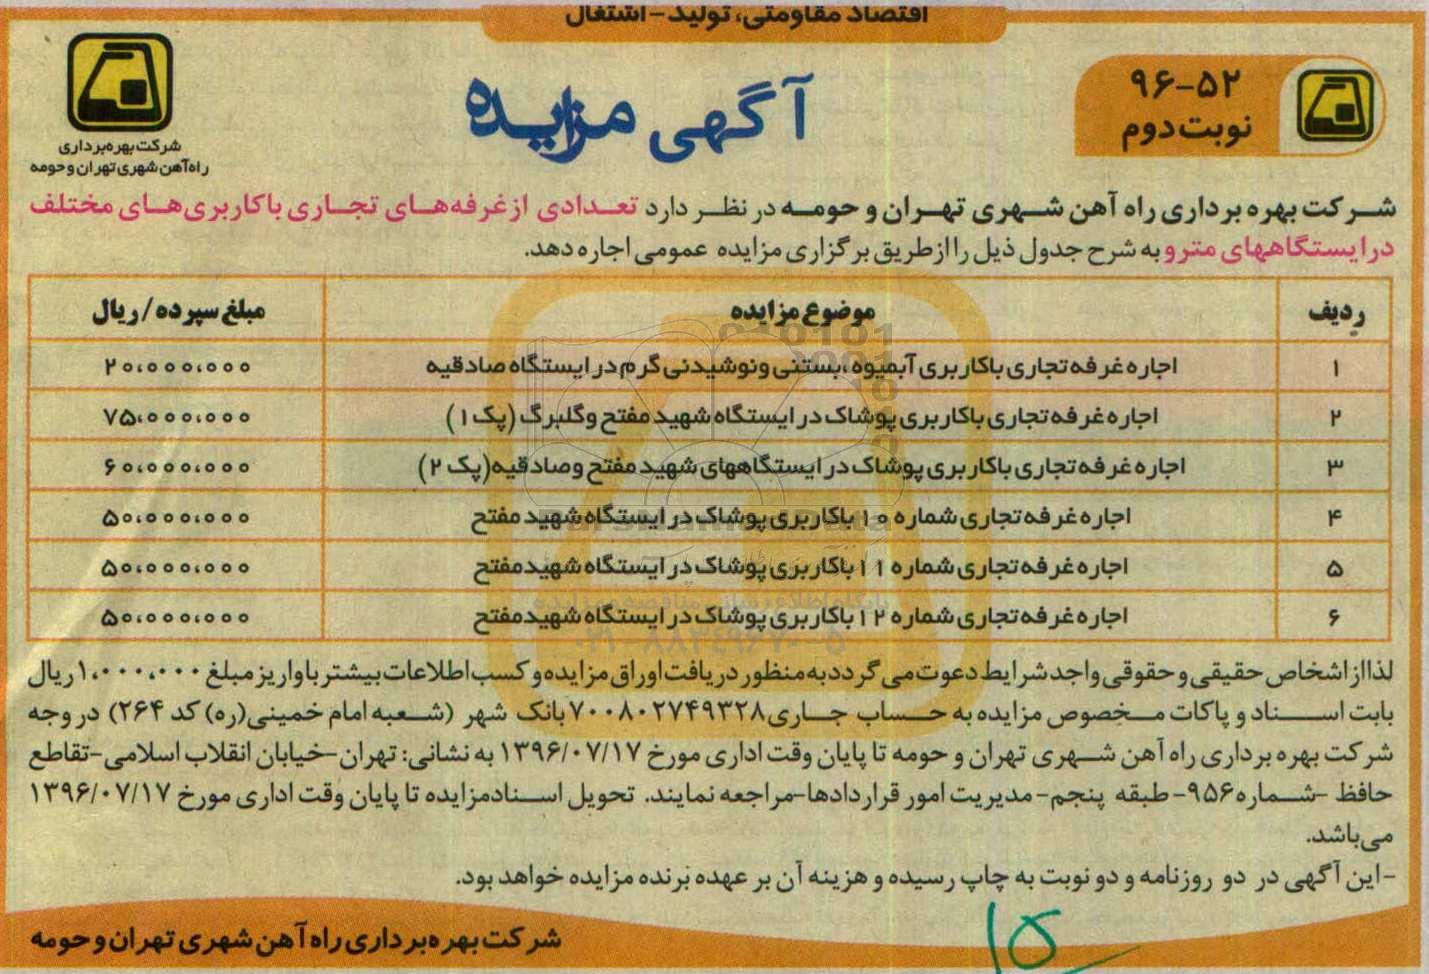 اقتصاد مقاومتی، تولید-اشتغال
۹۶-۵۲
نوبت دوم
آگهی مزایده
شرکت بهره‌برداری
راه‌آهن شهری تهران و حومه
شرکت بهره برداری راه آهن شهری تهران و حومه در نظر دارد تعدادی از غرفه‌های تجاری با کاربری‌های مختلف
در ایستگاههای مترو به شرح جدول ذیل را از طریق برگزاری مزایده عمومی اجاره دهد.
ردیف موضوع مزایده مبلغ سپرده/ریال
۱ اجاره غرفه تجاری با کاربری آبمیوه،بستنی و نوشیدنی گرم در ایستگاه صادقیه ۲۰،۰۰۰،۰۰۰
۲ اجاره غرفه تجاری با کاربری پوشاک در ایستگاه شهید مفتح و گلبرگ (پک ۱) ۷۵،۰۰۰،۰۰۰
۳ اجاره غرفه تجاری با کاربری پوشاک در ایستگاههای شهید مفتح و صادقیه(پک ۲) ۶۰،۰۰۰،۰۰۰
۴ اجاره غرفه تجاری شماره ۱۰ با کاربری پوشاک در ایستگاه شهید مفتح ۵۰،۰۰۰،۰۰۰
۵ اجاره غرفه تجاری شماره ۱۱ با کاربری پوشاک در ایستگاه شهید مفتح ۵۰،۰۰۰،۰۰۰
۶ اجاره غرفه تجاری شماره ۱۲ با کاربری پوشاک در ایستگاه شهید مفتح ۵۰،۰۰۰،۰۰۰
لذا از اشخاص حقیقی و حقوقی واجد شرایط دعوت می گردد به منظور دریافت اوراق مزایده و کسب اطلاعات بیشتر با واریز مبلغ ۱،۰۰۰،۰۰۰ ریال
بابت اسناد و پاکات مخصوص مزایده به حساب جاری ۷۰۰۸۰۲۷۴۹۳۲۸ بانک شهر (شعبه امام خمینی(ره) کد ۲۶۴) در وجه
شرکت بهره برداری راه آهن شهری تهران و حومه تا پایان وقت اداری مورخ ۱۳۹۶/۰۷/۱۷ به نشانی: تهران-خیابان انقلاب اسلامی-تقاطع
حافظ -شماره ۹۵۶- طبقه پنجم- مدیریت امور قراردادها-مراجعه نمایند. تحویل اسناد مزایده تا پایان وقت اداری مورخ ۱۳۹۶/۰۷/۱۷
می‌باشد.
-این آگهی در دو روزنامه و دو نوبت به چاپ رسیده و هزینه آن بر عهده برنده مزایده خواهد بود.
شرکت بهره‌برداری راه آهن شهری تهران و حومه
۱۵